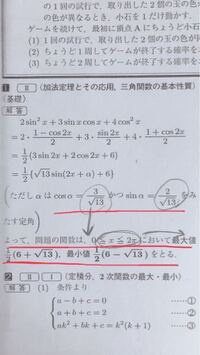 の色が異なるとき，小石を1だけ動かす．
ゲームを続けて，最初に頂点Aにちょうど
(1) 1回の試行で，取り出した2個の玉の色が
(2) ちょうど1周してゲームが終了する確率を
(3) ちょうど2周してゲームが終了する確率を
1 II (加法定理とその応用，三角関数の基本性質)
(基礎)
解答
2sin²x+3sin x cos x+4cos²x
=2・(1−cos2x)/2+3・(sin2x)/2+4・(1+cos2x)/2
=1/2(3sin2x+2cos2x+6)
=1/2{√13 sin(2x+α)+6}
(ただし α は cosα=3/√13 かつ sinα=2/√13 をみ
たす定角)
よって，問題の関数は，0≦x≦2πにおいて最大値
1/2(6+√13)，最小値 1/2(6−√13) をとる．
2 II I (定積分，2次関数の最大・最小)
解答 (1) 条件より
a−b+c=0 ……①
a+b+c=2 ……②
ak²+bk+c=k²(k+1) ……③